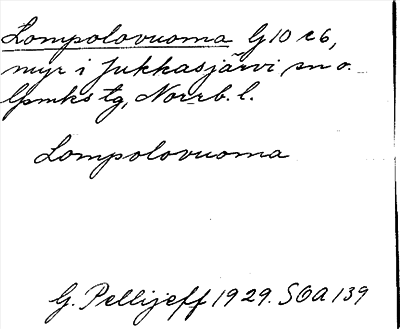 Lompolovuoma G10 c6,
myr i Jukkasjärvi sn o.
lpmks tg, Norrb. l.
Lompolovuoma
G. Pellijeff 1929. SOA 139